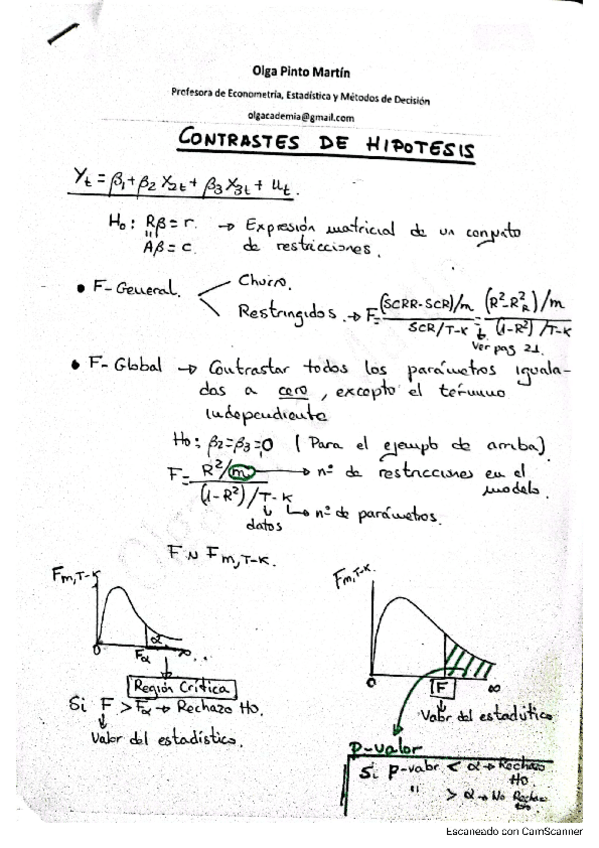 Olga Pinto Martín
Profesora de Econometría, Estadística y Métodos de Decisión
olgacademia@gmail.com
CONTRASTES DE HIPOTESIS
Yt = β1 + β2 X2t + β3 X3t + ut.
H0: Rβ = r. → Expresión matricial de un conjunto
"
Aβ = c. de restricciones.
• F-General. Churro.
Restringidos. → F = (SCRR-SCR)/m / SCR/T-K = (R²-R²R)/m / (1-R²)/T-K
Ver pag 21.
• F-Global → Contrastar todos los parámetros iguala-
dos a cero, excepto el término
independiente
H0: β2=β3=0 (Para el ejemplo de arriba).
F = R²/m / (1-R²)/T-K → nº de restricciones en el
modelo.
datos → nº de parámetros.
F ~ Fm,T-K.
Fm,T-K
Fm,T-K.
α
0 Fα ∞
0 F ∞
Región Crítica
Si F > Fα → Rechazo H0.
Valor del estadístico.
Valor del estadístico
P-valor
Si p-valor < α → Rechazo
H0.
" > α → No Rechazo
Escaneado con CamScanner